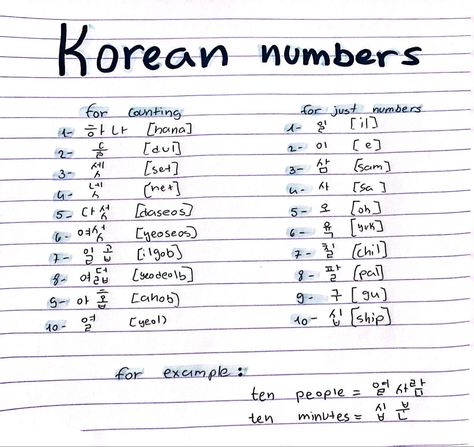 Korean numbers
for counting
1- 하나 [hana]
2- 둘 [dul]
3- 셋 [set]
4- 넷 [net]
5- 다섯 [daseos]
6- 여섯 [yeoseos]
7- 일곱 [ilgob]
8- 여덟 [yeodeolb]
9- 아홉 [ahob]
10- 열 [yeol]
for just numbers
1- 일 [il]
2- 이 [e]
3- 삼 [sam]
4- 사 [sa]
5- 오 [oh]
6- 육 [yuk]
7- 칠 [chil]
8- 팔 [pal]
9- 구 [gu]
10- 십 [ship]
for example:
ten people = 열 사람
ten minutes = 십 분